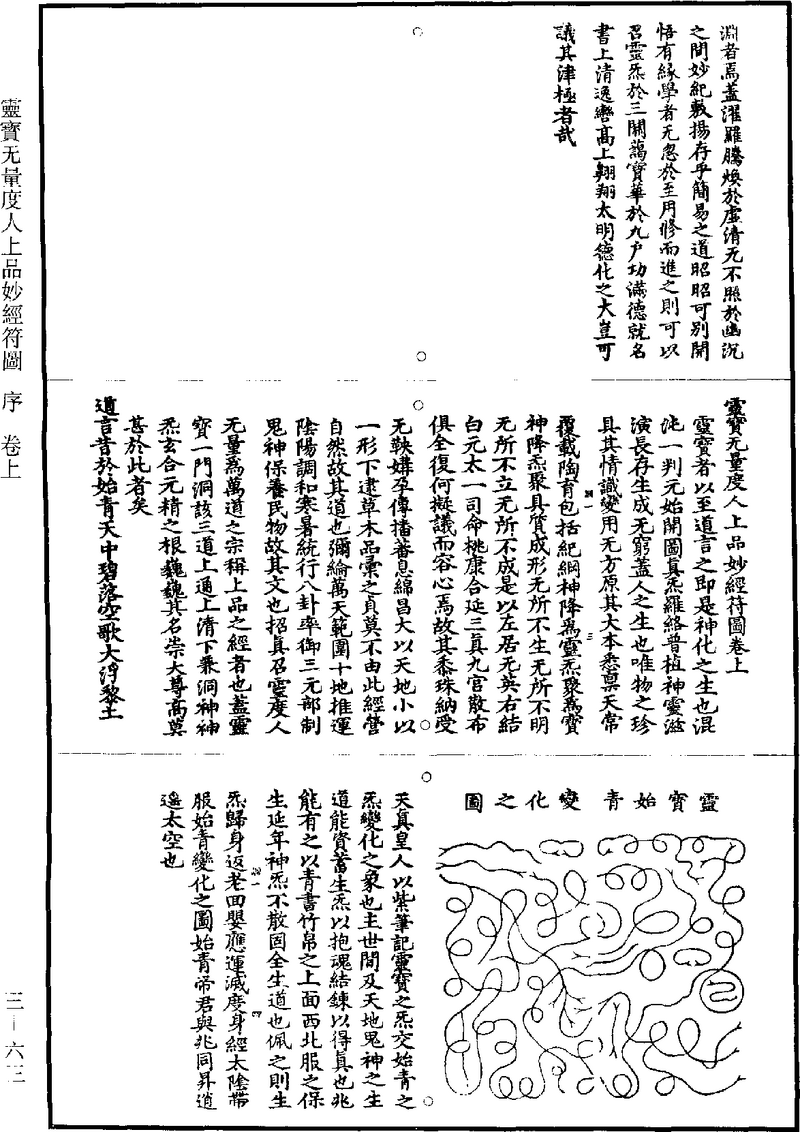 淵者焉蓋濯羅騰煥於虛清无不照於幽沉
之間妙紀敷揚存乎簡易之道昭昭可别開
悟有緣學者无忽於至用修而進之則可以
召靈炁於三關藹寶華於九户功滿德就名
書上清逸轡髙上翱翔太明德化之大豈可
議其津極者哉
靈寶无量度人上品妙經符圖卷上
靈寶者以至道言之即是神化之生也混
沌一判元始開圖真炁羅絡普植神靈滋
演長存生成无窮蓋人之生也唯物之珍
具其情識變用无方原其大本悉稟天常
覆載陶育包括紀綱神降爲靈炁聚爲寶
神降炁聚具質成形无所不生无所不明
无所不立无所不成是以左居无英右結
白元太一司命桃康合延三真九宫散布
俱全復何擬議而容心焉故其黍珠納受
无鞅媾孕傳播蕃息綿昌大以天地小以
一形下逮草木品彙之貞莫不由此經營
自然故其道也彌綸萬天範圍十地推運
陰陽調和寒暑統行八卦率御三元部制
鬼神保養民物故其文也招真召靈度人
无量爲萬道之宗稱上品之經者也蓋靈
寶一門洞該三道上通上清下兼洞神神
炁玄合元精之根巍巍其名崇大尊高莫
甚於此者矣
道言昔於始青天中碧落空歌大浮黎土
靈寶始青變化之圖
天真皇人以紫筆記靈寶之炁交始青之
炁變化之象也主世間及天地鬼神之生
道能資蓄生炁以抱魂結鍊以得真也兆
能有之以青書竹帛之上面西北服之保
生延年神炁不散固全生道也佩之則生
炁歸身返老回嬰應運滅度身經太陰帶
服始青變化之圖始青帝君與兆同昇逍
遥太空也
靈寶无量度人上品妙經符圖 序 卷上
三—六三